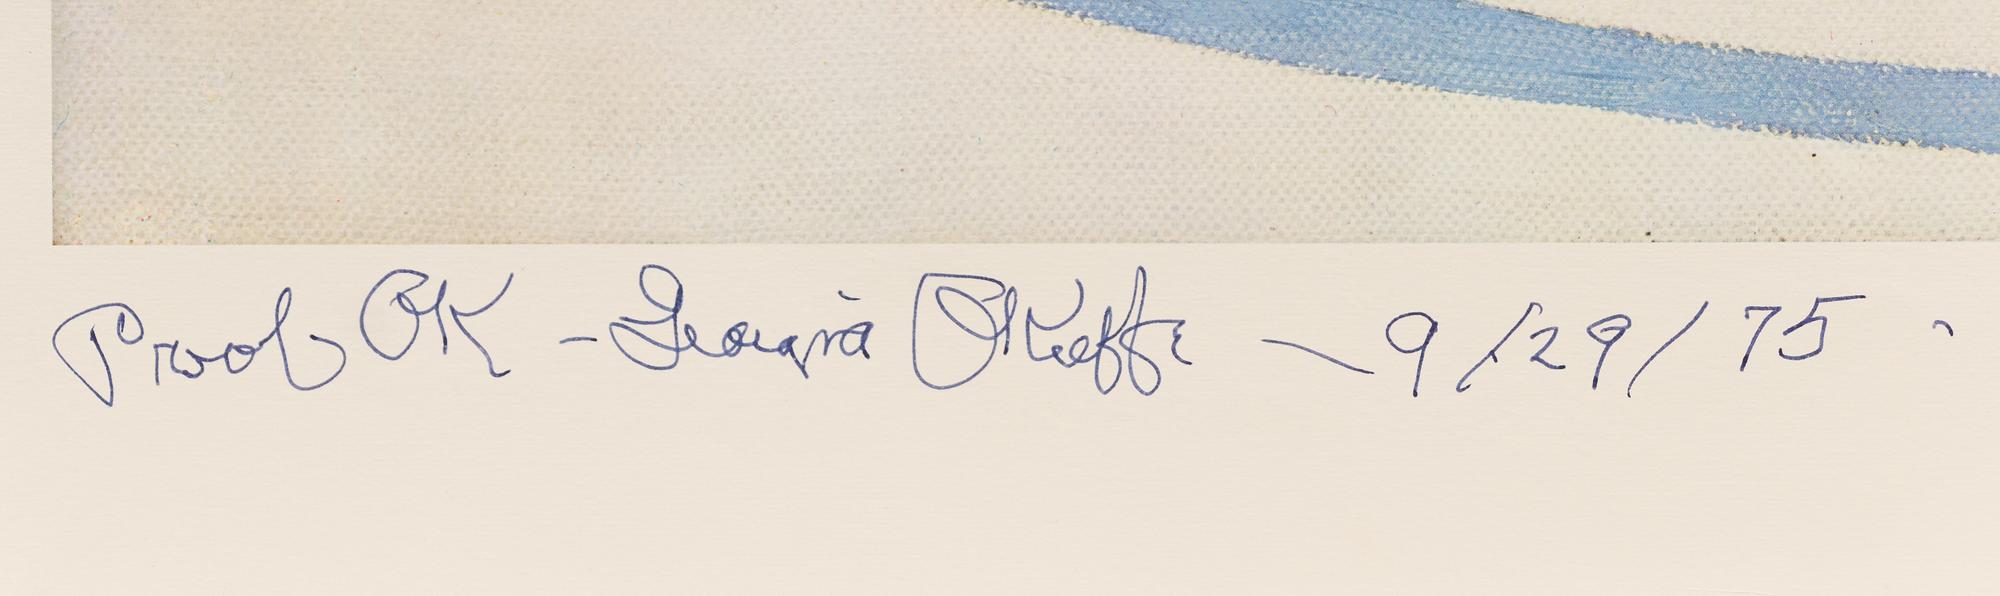 Proof OK - Georgia O'Keeffe - 9/29/75